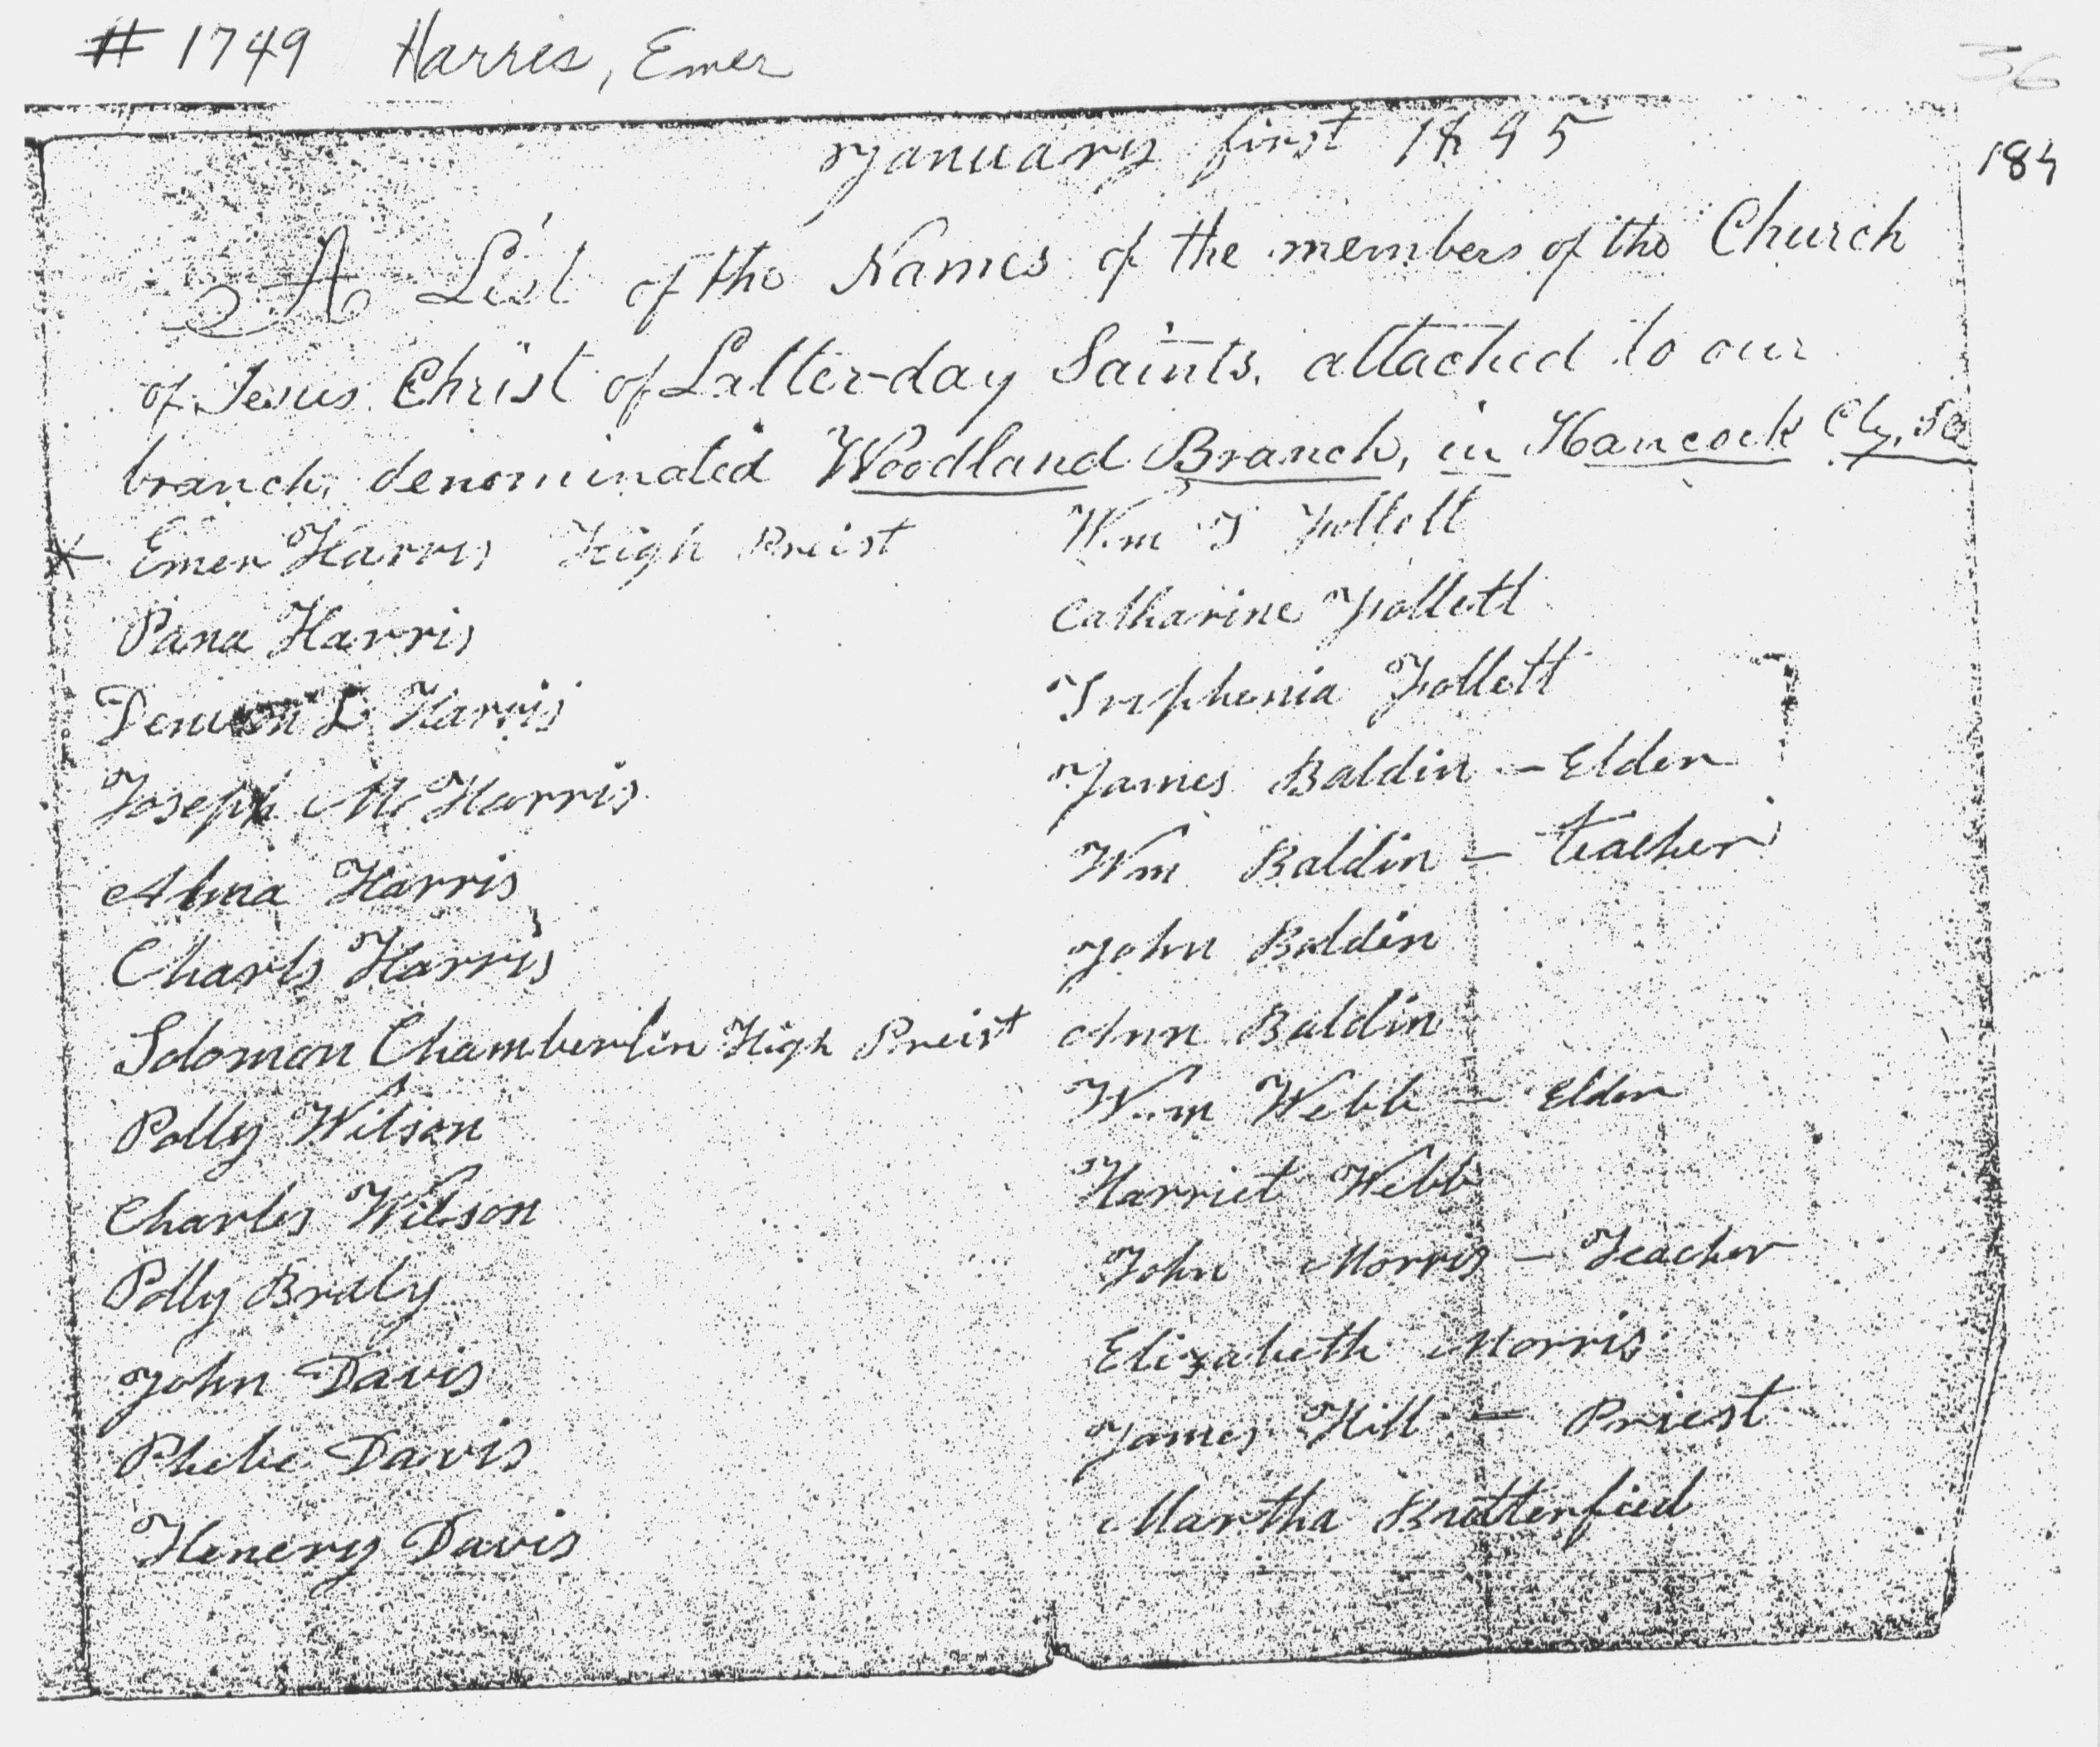 # 1749 Harris, Emer
36
January first 1845
184
A List of the Names of the members of the Church
of Jesus Christ of Latter-day Saints. attached to our
branch, denominated Woodland Branch, in Hancock Cty,
Emer Harris High Preist
Pana Harris
Denison L Harris
Joseph M Harris
Alma Harris
Charls Harris
Solomon Chamberlin High Preist
Polly Wilson
Charles Wilson
Polly Braly
John Davis
Phebe Davis
Henery Davis
Wm T Follett
Catharine Follett
Triphenia Follett
James Baldin - Elder
Wm Baldin - teacher
John Baldin
Ann Baldin
Wm Webb - Elder
Harriet Webb
John Morris - Teacher
Elizabeth Morris
James Hill - Priest
Martha Butterfied